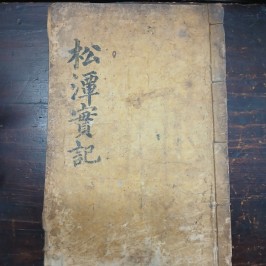 松潭實記